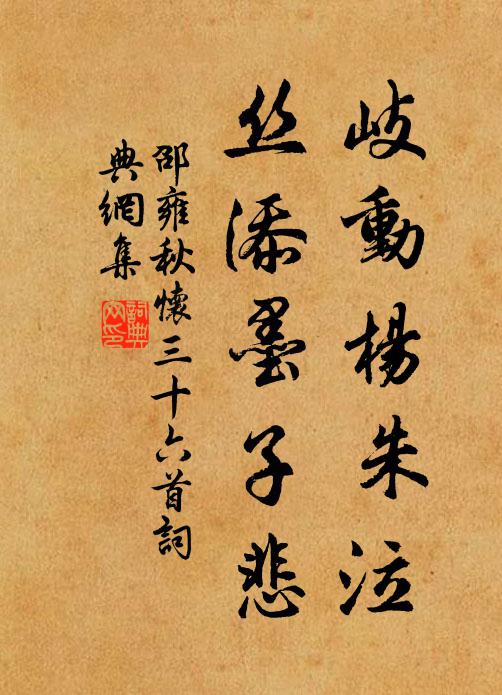 歧動楊朱泣
丝添墨子悲
邵雍秋懷三十六首詞
典網集
詞典
网印